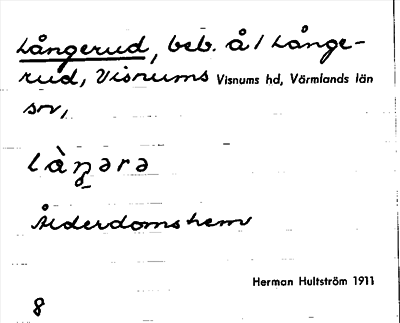 Långerud, beb. å/Långe-
rud, Visnums Visnums hd, Värmlands län
sn,
làŋ̠ərə
Ålderdomshem
Herman Hultström 1911
8